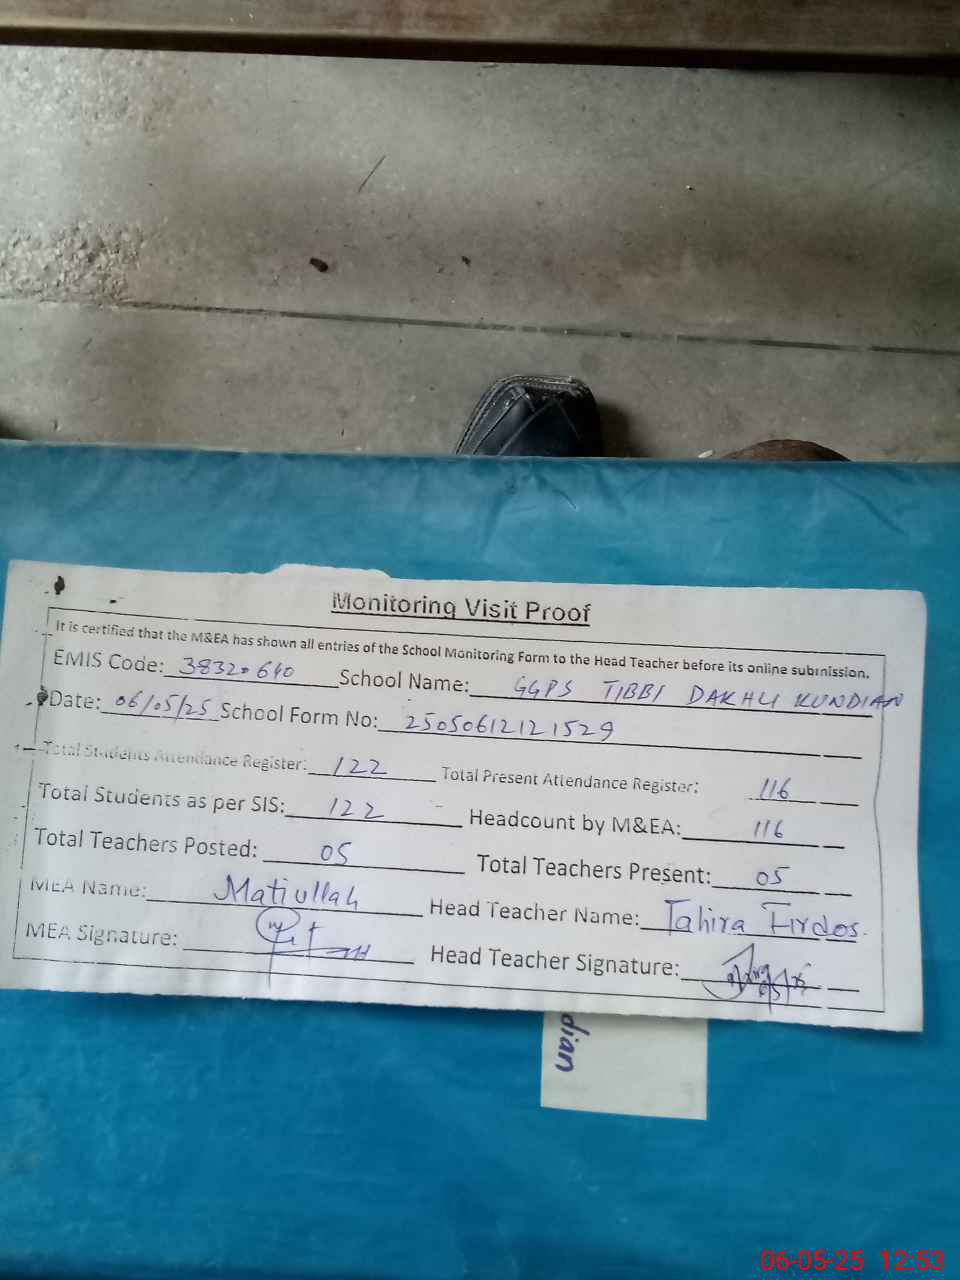 Monitoring Visit Proof
It is certified that the M&EA has shown all entries of the School Monitoring Form to the Head Teacher before its online submission.
EMIS Code: 38320640 School Name: GGPS TIBBI DAKHLI KUNDIAN
Date: 06/05/25 School Form No: 25050612121529
Total Students Attendance Register: 122 Total Present Attendance Register: 116
Total Students as per SIS: 122 Headcount by M&EA: 116
Total Teachers Posted: 05 Total Teachers Present: 05
MEA Name: Matiullah Head Teacher Name: Tahira Firdos.
MEA Signature: Head Teacher Signature:
dian
06-05-25 12:53